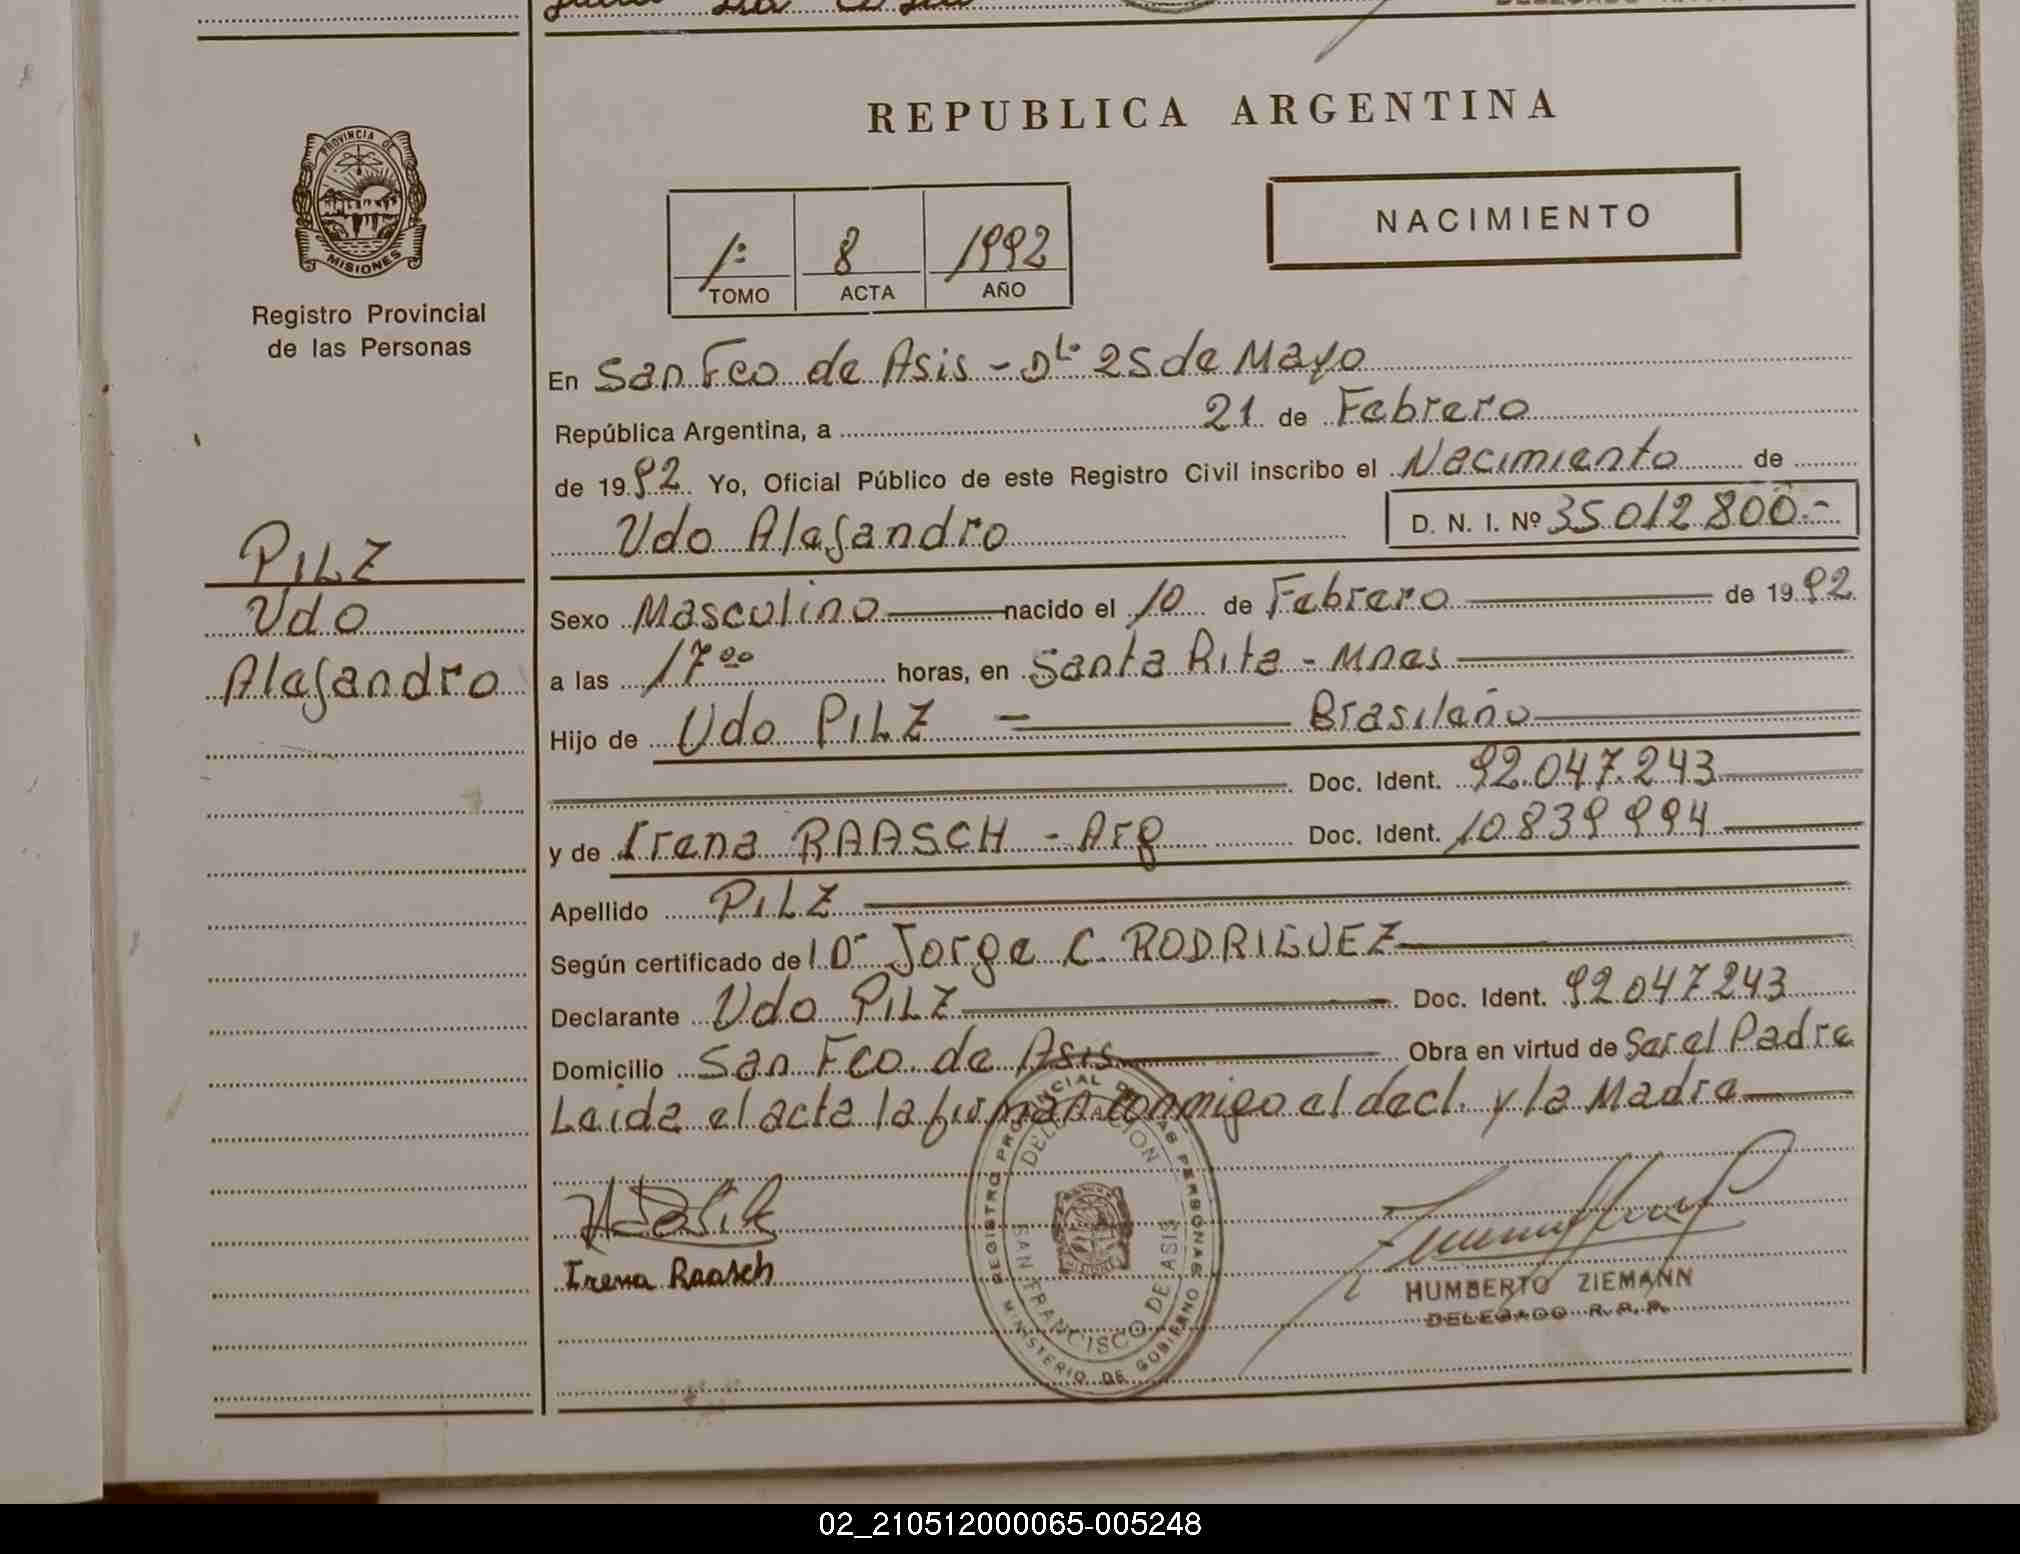 REPUBLICA ARGENTINA
PROVINCIA DE
MISIONES
Registro Provincial
de las Personas
NACIMIENTO
1º 8 1992
TOMO ACTA AÑO
En San Fco de Asis - Dto 25 de Mayo
República Argentina, a 21 de Febrero
de 1992 Yo, Oficial Público de este Registro Civil inscribo el Nacimiento de
Udo Alejandro D. N. I. Nº 35012800.-
PILZ
Udo
Alejandro
Sexo Masculino nacido el 10 de Febrero de 1992
a las 17 00 horas, en Santa Rita - Mnes
Hijo de Udo PILZ - Brasileño
Doc. Ident. 92.047.243
y de Irena RAASCH - Arg Doc. Ident. 10839994
Apellido PILZ
Según certificado de l Dr Jorge C. RODRIGUEZ
Declarante Udo PILZ Doc. Ident. 92047243
Domicilio San Fco de Asis Obra en virtud de Ser el Padre
Leida el acta la firman conmigo el decl. y la Madre
Irena Raasch
REGISTRO PROVINCIAL DE LAS PERSONAS
DELEGACION
SAN FRANCISCO DE ASIS
MINISTERIO DE GOBIERNO
HUMBERTO ZIEMANN
DELEGADO R. P. P.
02_210512000065-005248